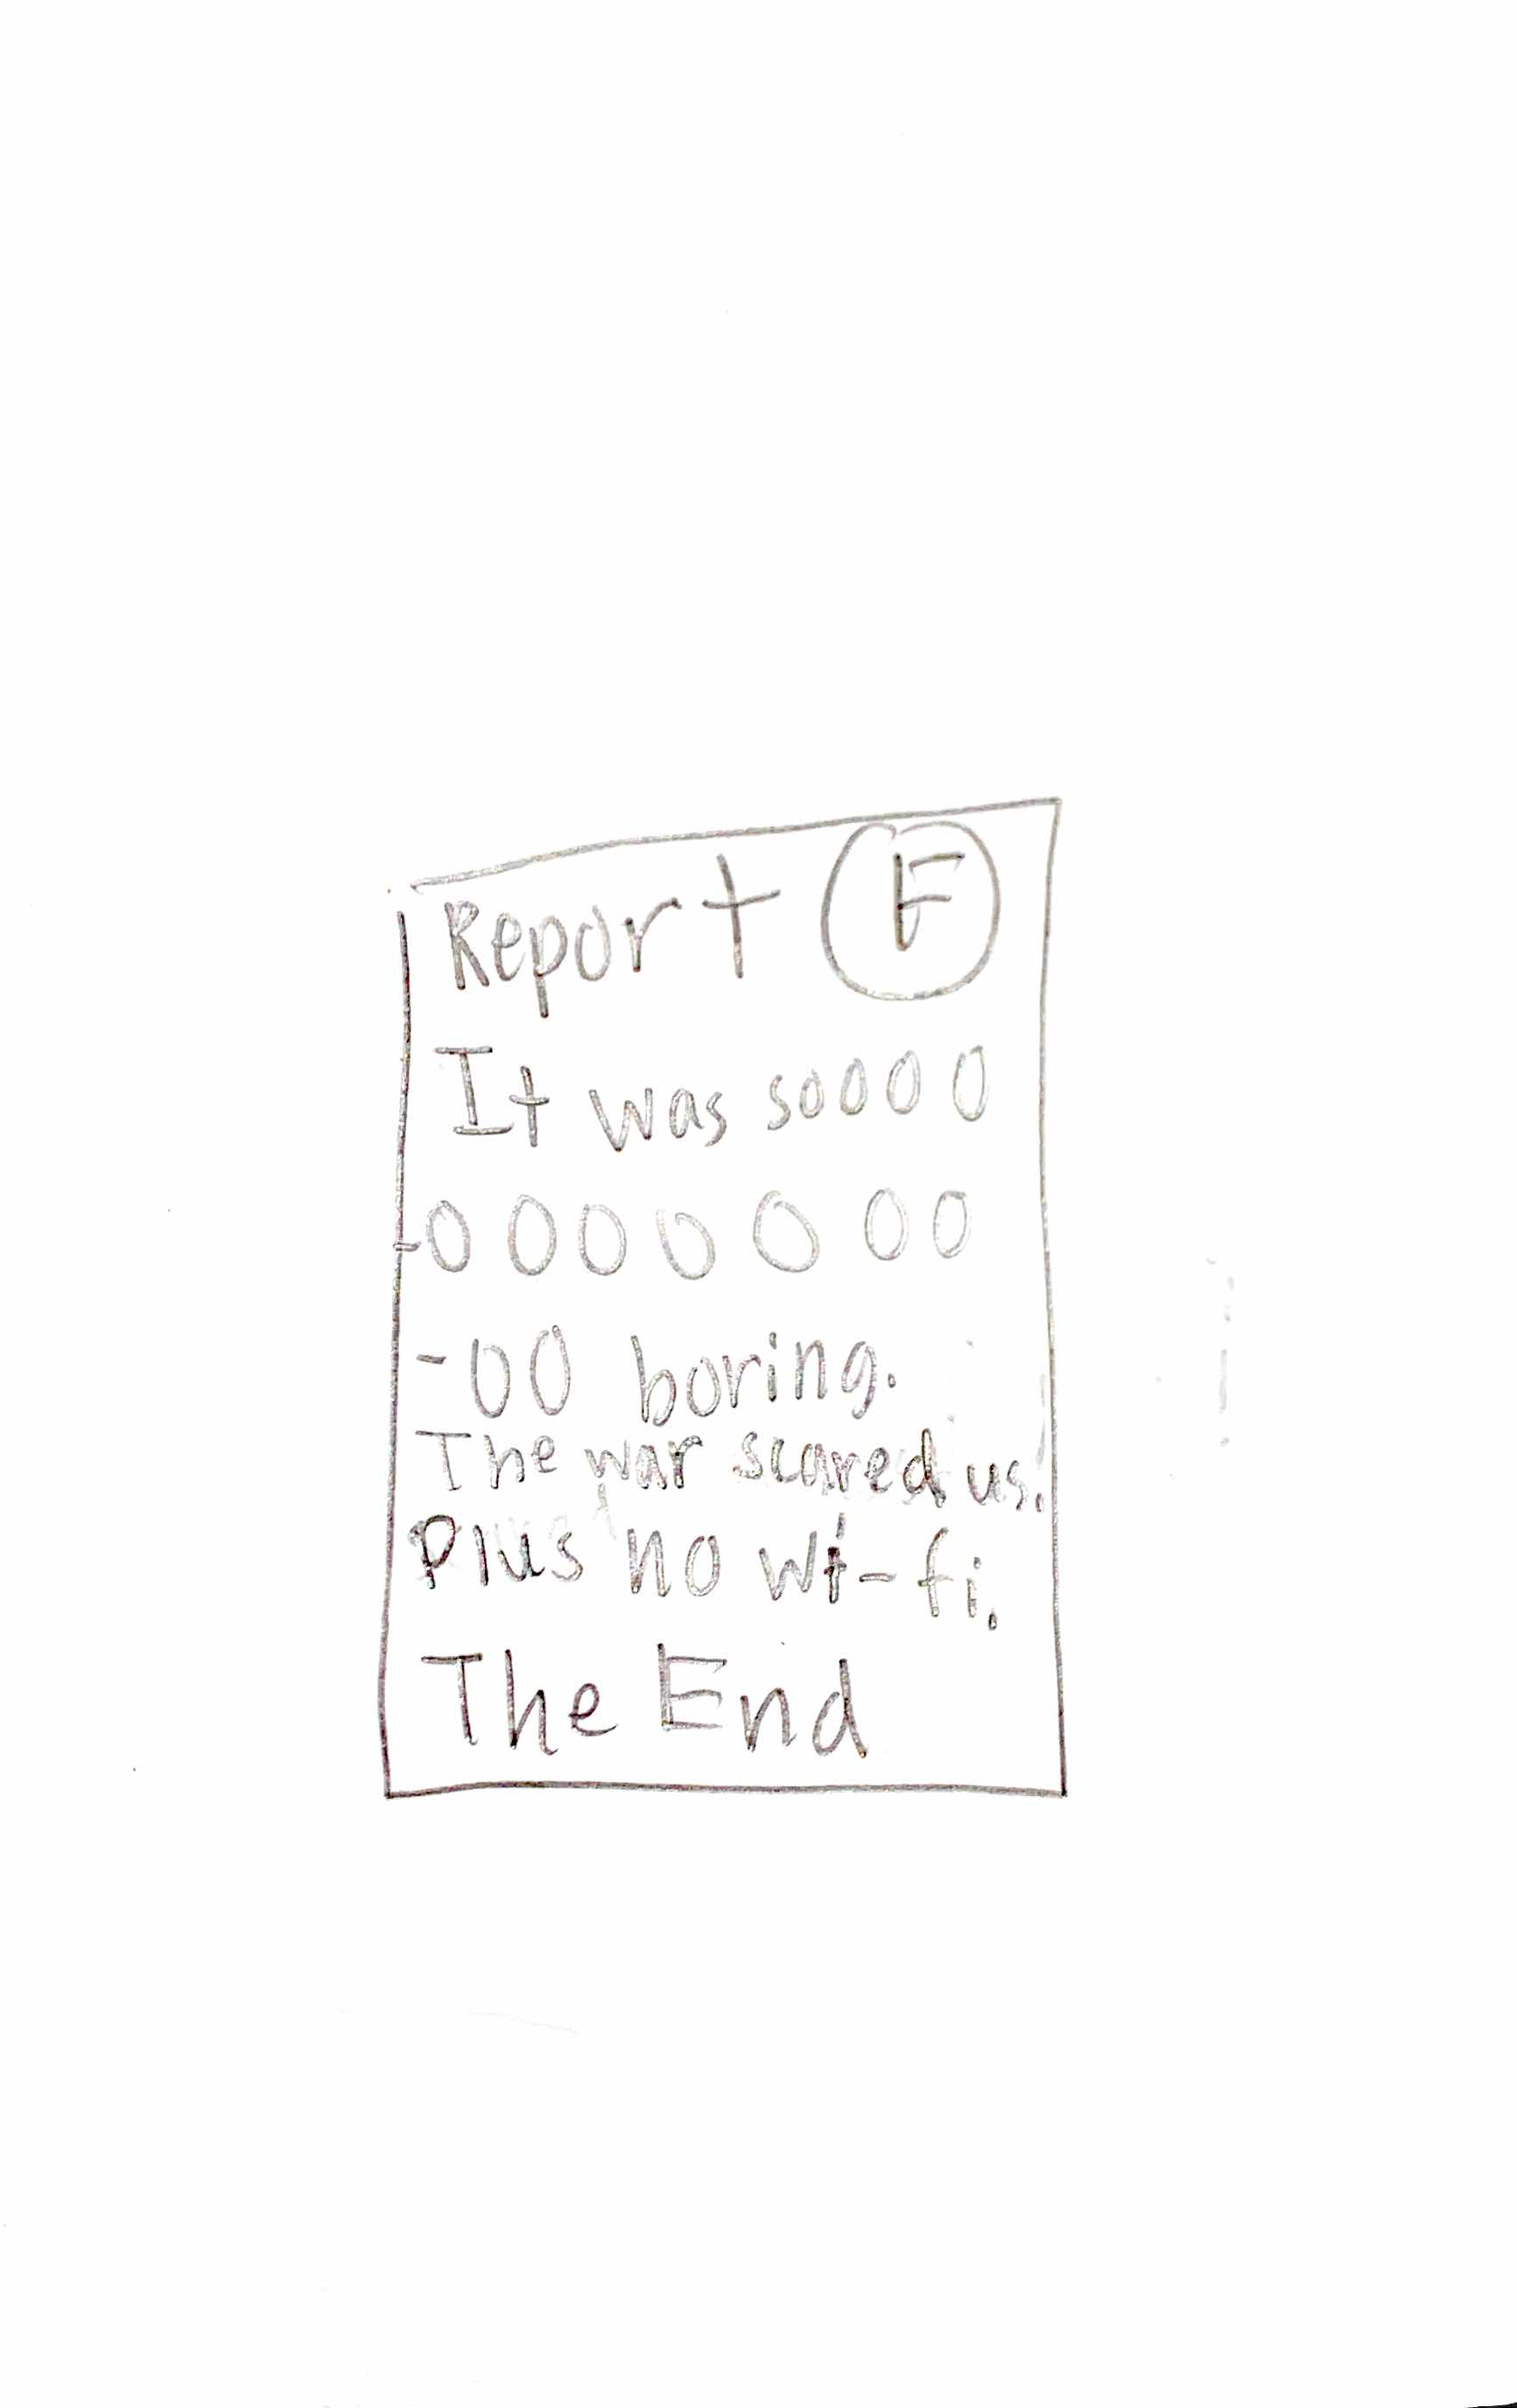 Report F
It was soooo
-ooooooo
-oo boring.
The war scared us.
Plus no wi-fi.
The End